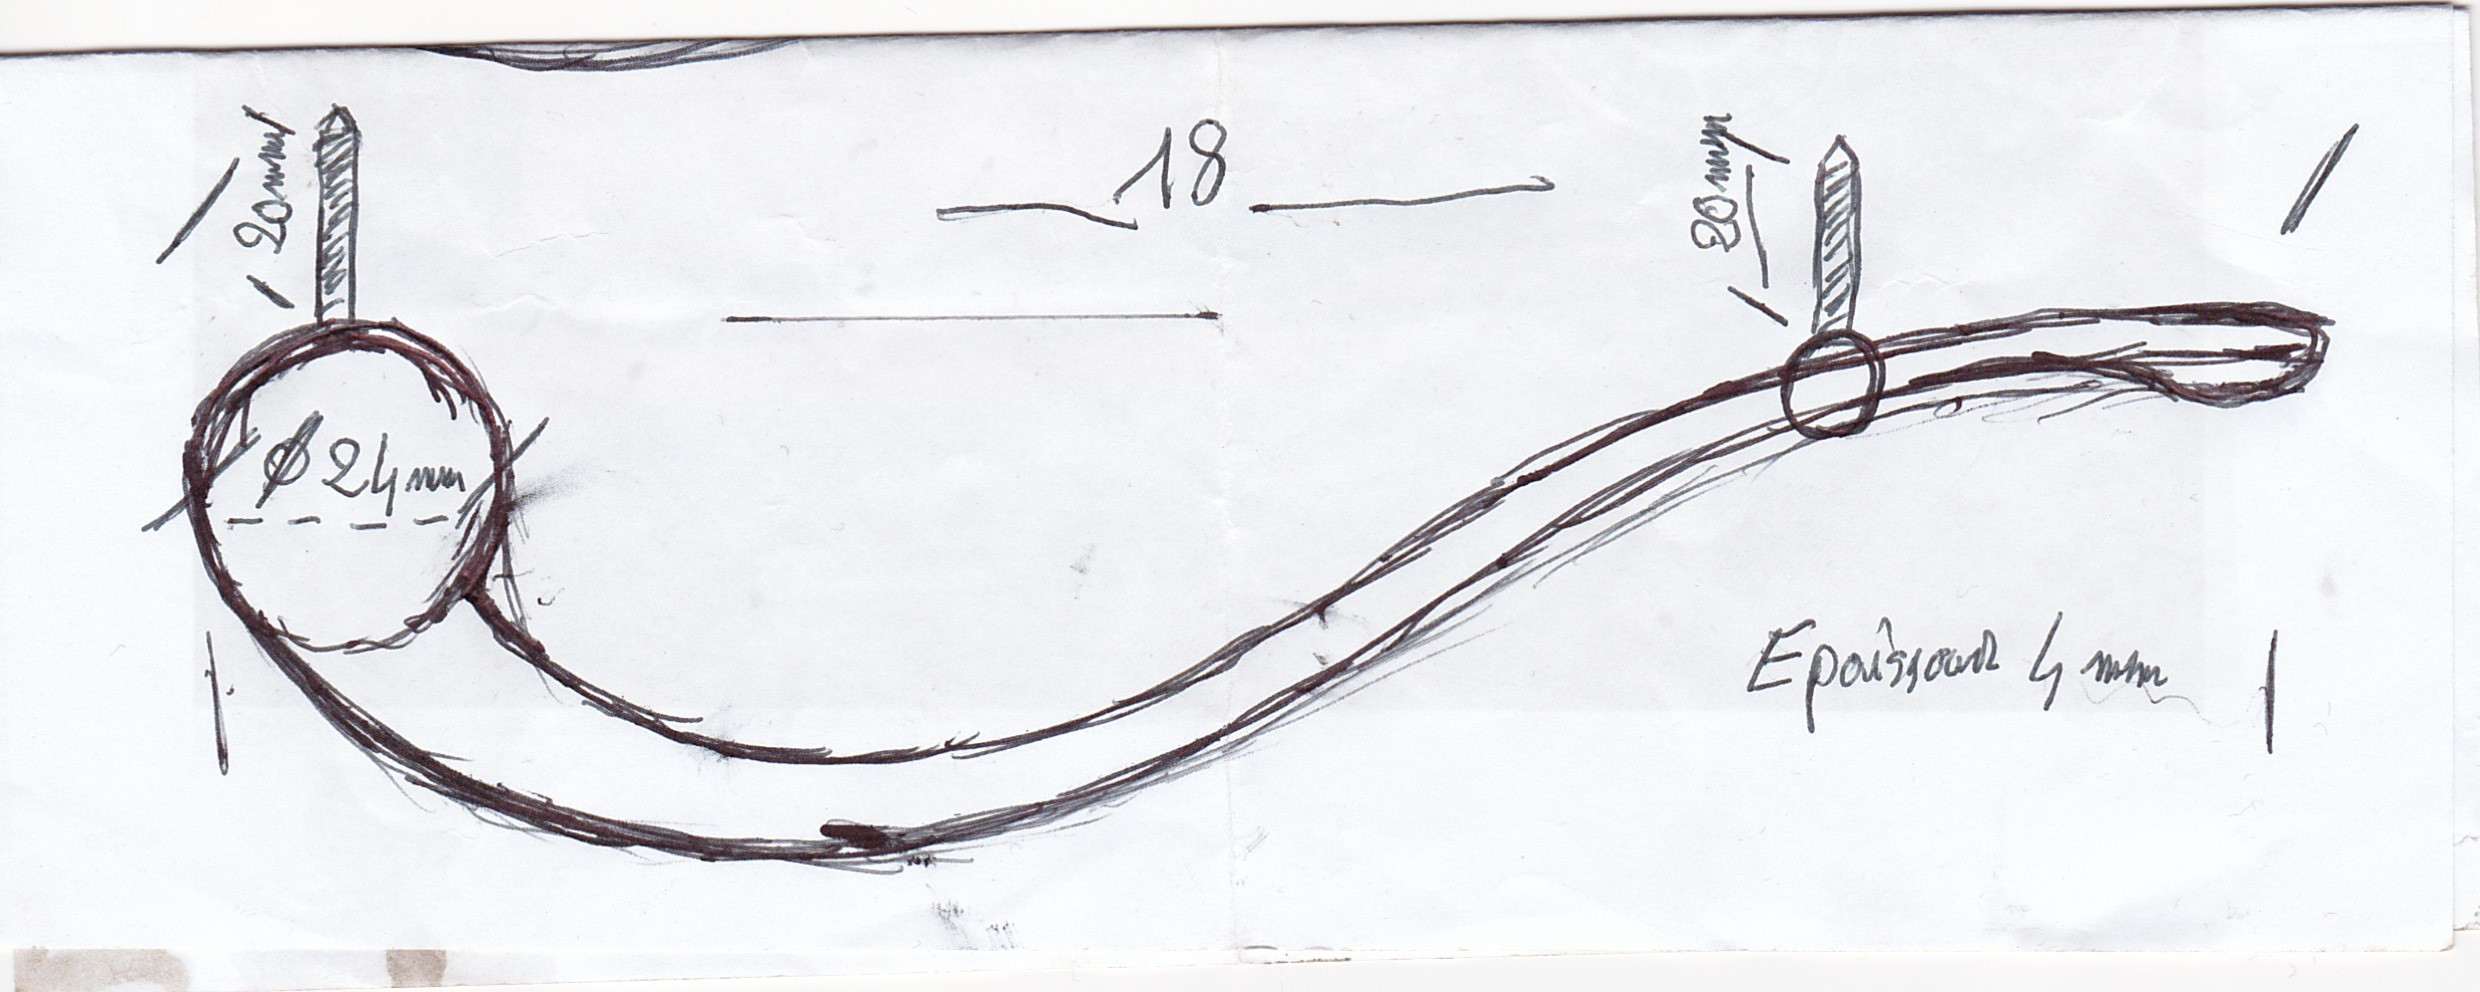 20mm
18
20mm
ø 24 mm
Epaisseur 4 mm